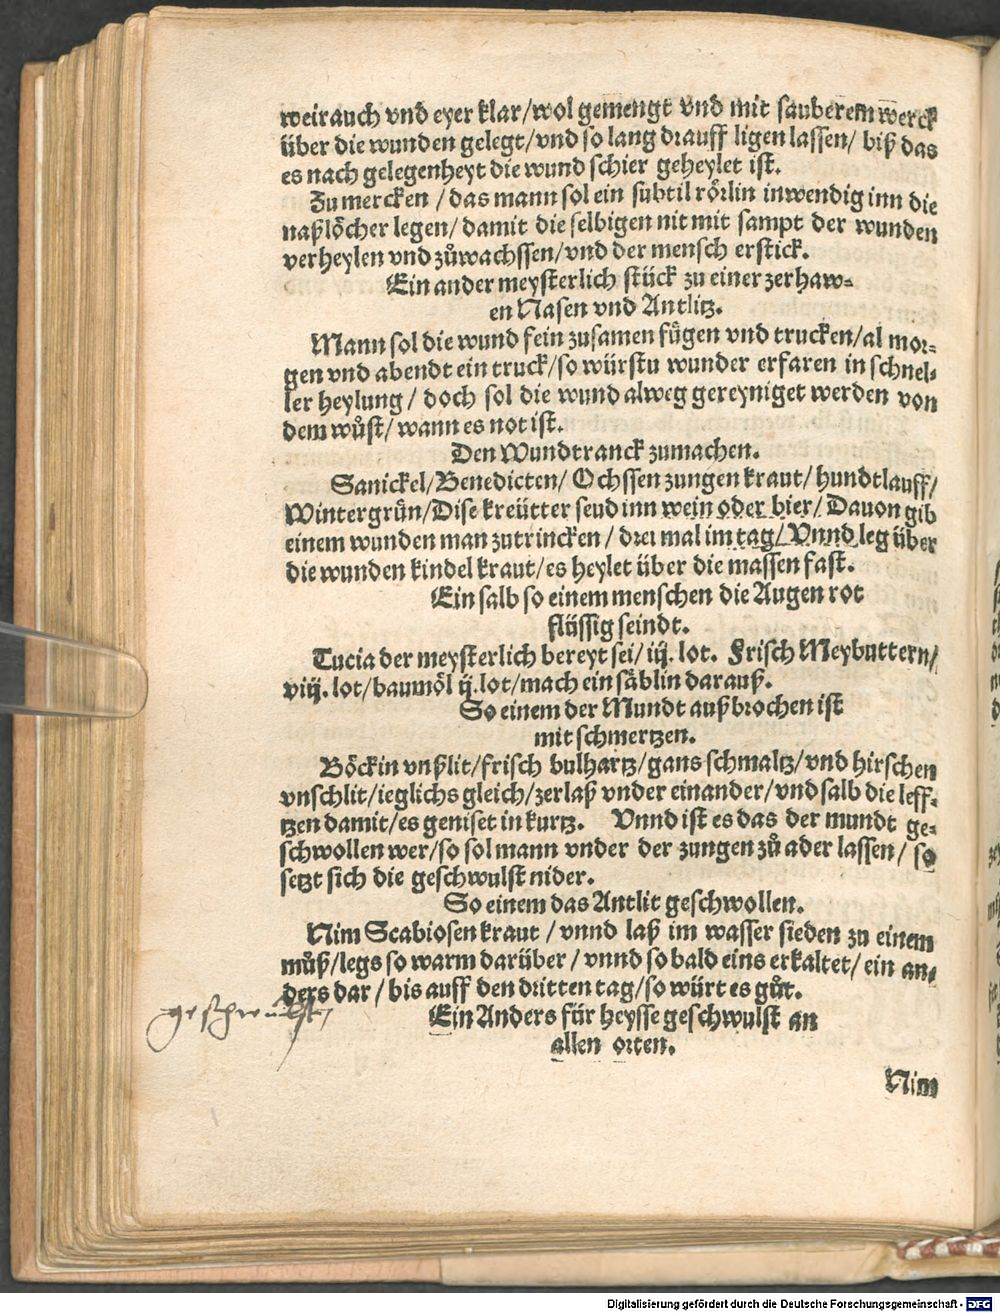 weirauch vnd eyer klar/wol gemengt vnd mit sauberem werck
über die wunden gelegt/vnd so lang drauff ligen lassen/ biß das
es nach gelegenheyt die wund schier geheylet ist.
Zu mercken /das mann sol ein subtil rörlin inwendig inn die
naßlöcher legen/damit die selbigen nit mit sampt der wunden
verheylen vnd zůwachssen/vnd der mensch erstick.
Ein ander meysterlich stück zu einer zerhaw-
en Nasen vnd Antlitz.
Mann sol die wund fein zusamen fügen vnd trucken/al mor-
gen vnd abendt ein truck/so würstu wunder erfaren in schnel-
ler heylung/ doch sol die wund alweg gereyniget werden von
dem wůst/wann es not ist.
Den Wundtranck zumachen.
Sanickel/Benedicten/Ochssen zungen kraut/hundtlauff/
Wintergrün/Dise kreütter seud inn wein oder bier/Dauon gib
einem wunden man zutrincken/drei mal im tag/Vnnd leg über
die wunden kindel kraut/es heylet über die massen fast.
Ein salb so einem menschen die Augen rot
flüssig seindt.
Tucia der meysterlich bereyt sei/iij. lot. Frisch Meybuttern/
viij. lot/baumöl ij.lot/mach ein sälblin darauß.
So einem der Mundt außbrochen ist
mit schmertzen.
Böckin vnßlit/frisch bulhartz/gans schmaltz/vnd hirschen
vnschlit/ieglichs gleich/zerlaß vnder einander/vnd salb die leff-
tzen damit/es geniset in kurtz. Vnnd ist es das der mundt ge-
schwollen wer/so sol mann vnder der zungen zů ader lassen/ so
setzt sich die geschwulst nider.
So einem das Antlit geschwollen.
Nim Scabiosen kraut /vnnd laß im wasser sieden zu einem
můß/legs so warm darüber/vnnd so bald eins erkaltet/ein an-
ders dar/bis auff den dritten tag/so würt es gůt.
geschwulst
Ein Anders für heysse geschwulst an
allen orten.
Nim
Digitalisierung gefördert durch die Deutsche Forschungsgemeinschaft - DFG